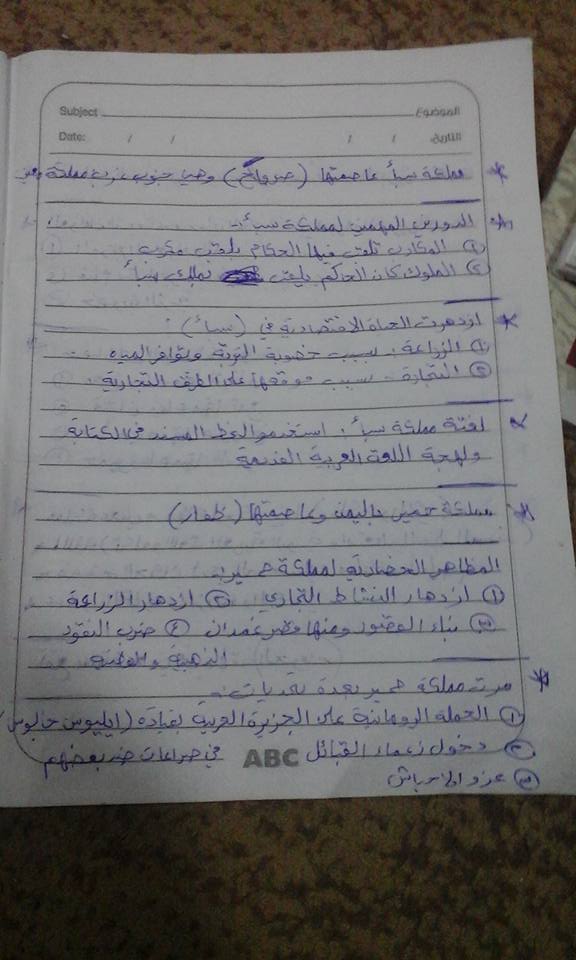 Subject الموضوع
Date: / / / / التاريخ
* مملكة سبأ عاصمتها (صرواح) وهي جنوب غرب مملكة معين
* الدورين المهمين لمملكة سبأ :-
① المكارب تلقب فيها الحكام بلقب مكرب
② الملوك كان الحاكم يلقب بملك سبأ
* ازدهرت الحياة الاقتصادية في (سبأ) :
① الزراعة : بسبب خصوبة التربة وتوافر المياه
② التجارة - بسبب موقعها على الطرق التجارية
* لغة مملكة سبأ : استخدموا الخط المسند في الكتابة
ولهجة اللغة العربية القديمة
* مملكة حمير باليمن وعاصمتها (ظفار)
المظاهر الحضارية لمملكة حمير :
① ازدهار النشاط التجاري ② ازدهار الزراعة
③ بناء القصور ومنها قصر غمدان ④ ضرب النقود
الذهبية والفضية
* مرت مملكة حمير بعدة تحديات :-
① الحملة الرومانية على الجزيرة العربية بقيادة (ايليوس جالوس)
② دخول زعماء القبائل في صراعات ضد بعضهم
ABC
③ غزو الاحباش